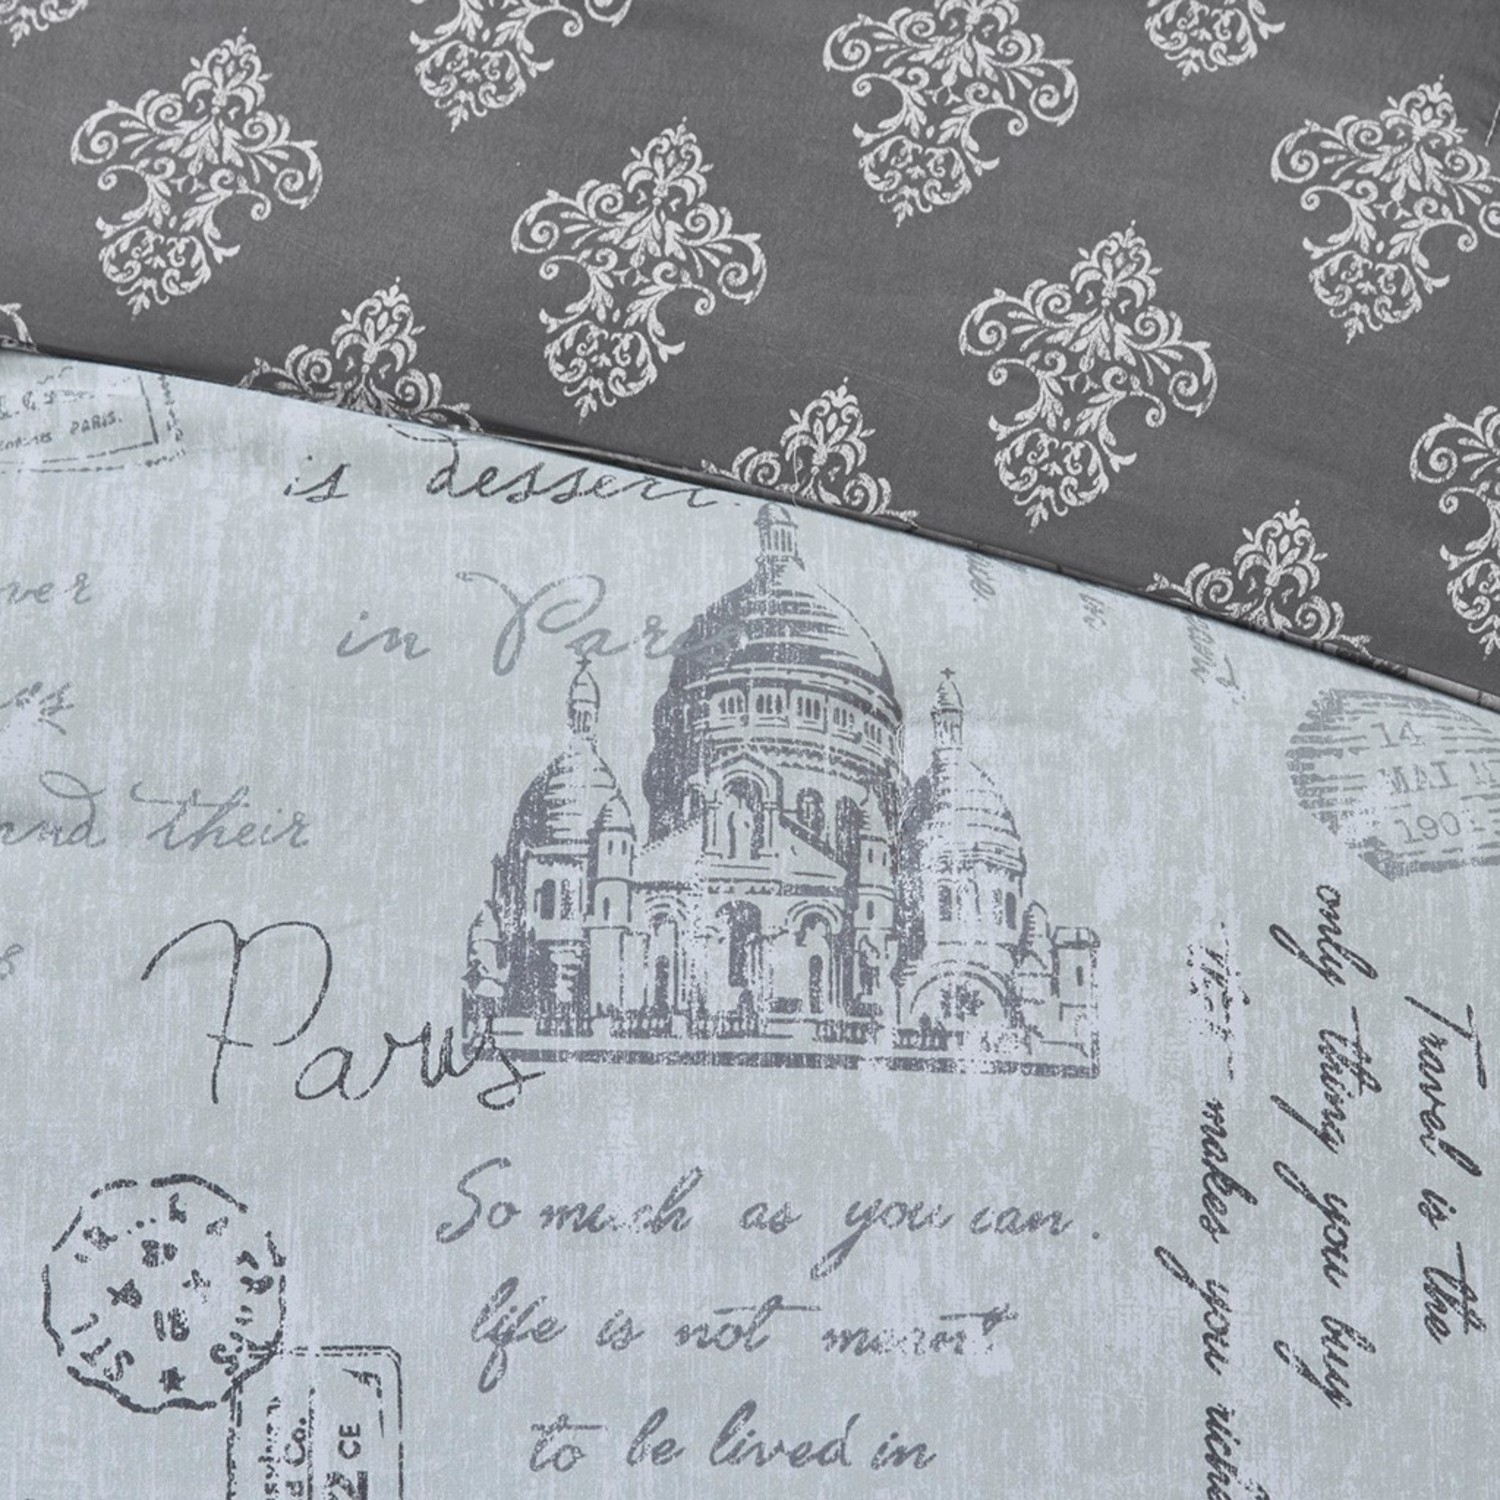 PARIS.
is dessert
in Paris
ver
and their
14
MAI 11
190
Paris
Travel is the
only thing you buy
that makes you riche
So much as you can.
life is not meant
to be lived in
d Co.
CE